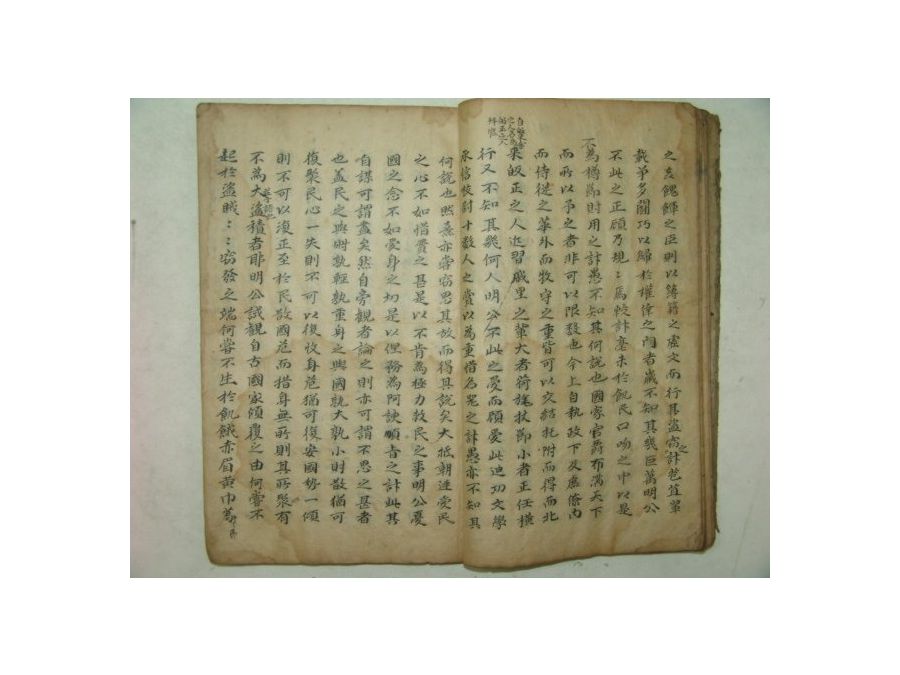 之支餽餫之臣則以簿籍之虛文而行其盜竊之計苞苴輦
載爭多鬪巧以歸於權倖之門者歲不知其幾巨萬明公
不此之正顧乃規〻焉較計毫末於飢民口吻之中以是
不為撙節財用之計愚不知其何說也國家官爵布滿天下
而所以予之者非可以限數也今上自執政下及庶僚內
而侍從之華外而牧守之重皆可以交結托附而得而北
來歸正之人近習戚里之輩大者荷旄仗節小者正任橫
行又不知其幾何人明公不此之愛而顧愛此迪功文學
承信校尉十數人之賞以為重惜名器之計愚亦不知其
何說也然熹亦嘗竊思其故而得其說矣大抵朝廷愛民
之心不如惜費之甚是以不肯為極力救民之事明公憂
國之念不如愛身之切是以但務為阿諛順旨之計此其
自謀可謂盡矣然自旁觀者論之則亦可謂不思之甚者
也盖民之與財孰輕孰重身之與國孰大孰小財散猶可
復聚民心一失則不可以復收身危猶可復安國勢一傾
則不可以復正至於民散國危而措身無所則其所聚有
不為大盜積者耶明公試觀自古國家傾覆之由何嘗不
起於盜賊〻〻竊發之端何嘗不生於飢餓赤眉黃巾葛